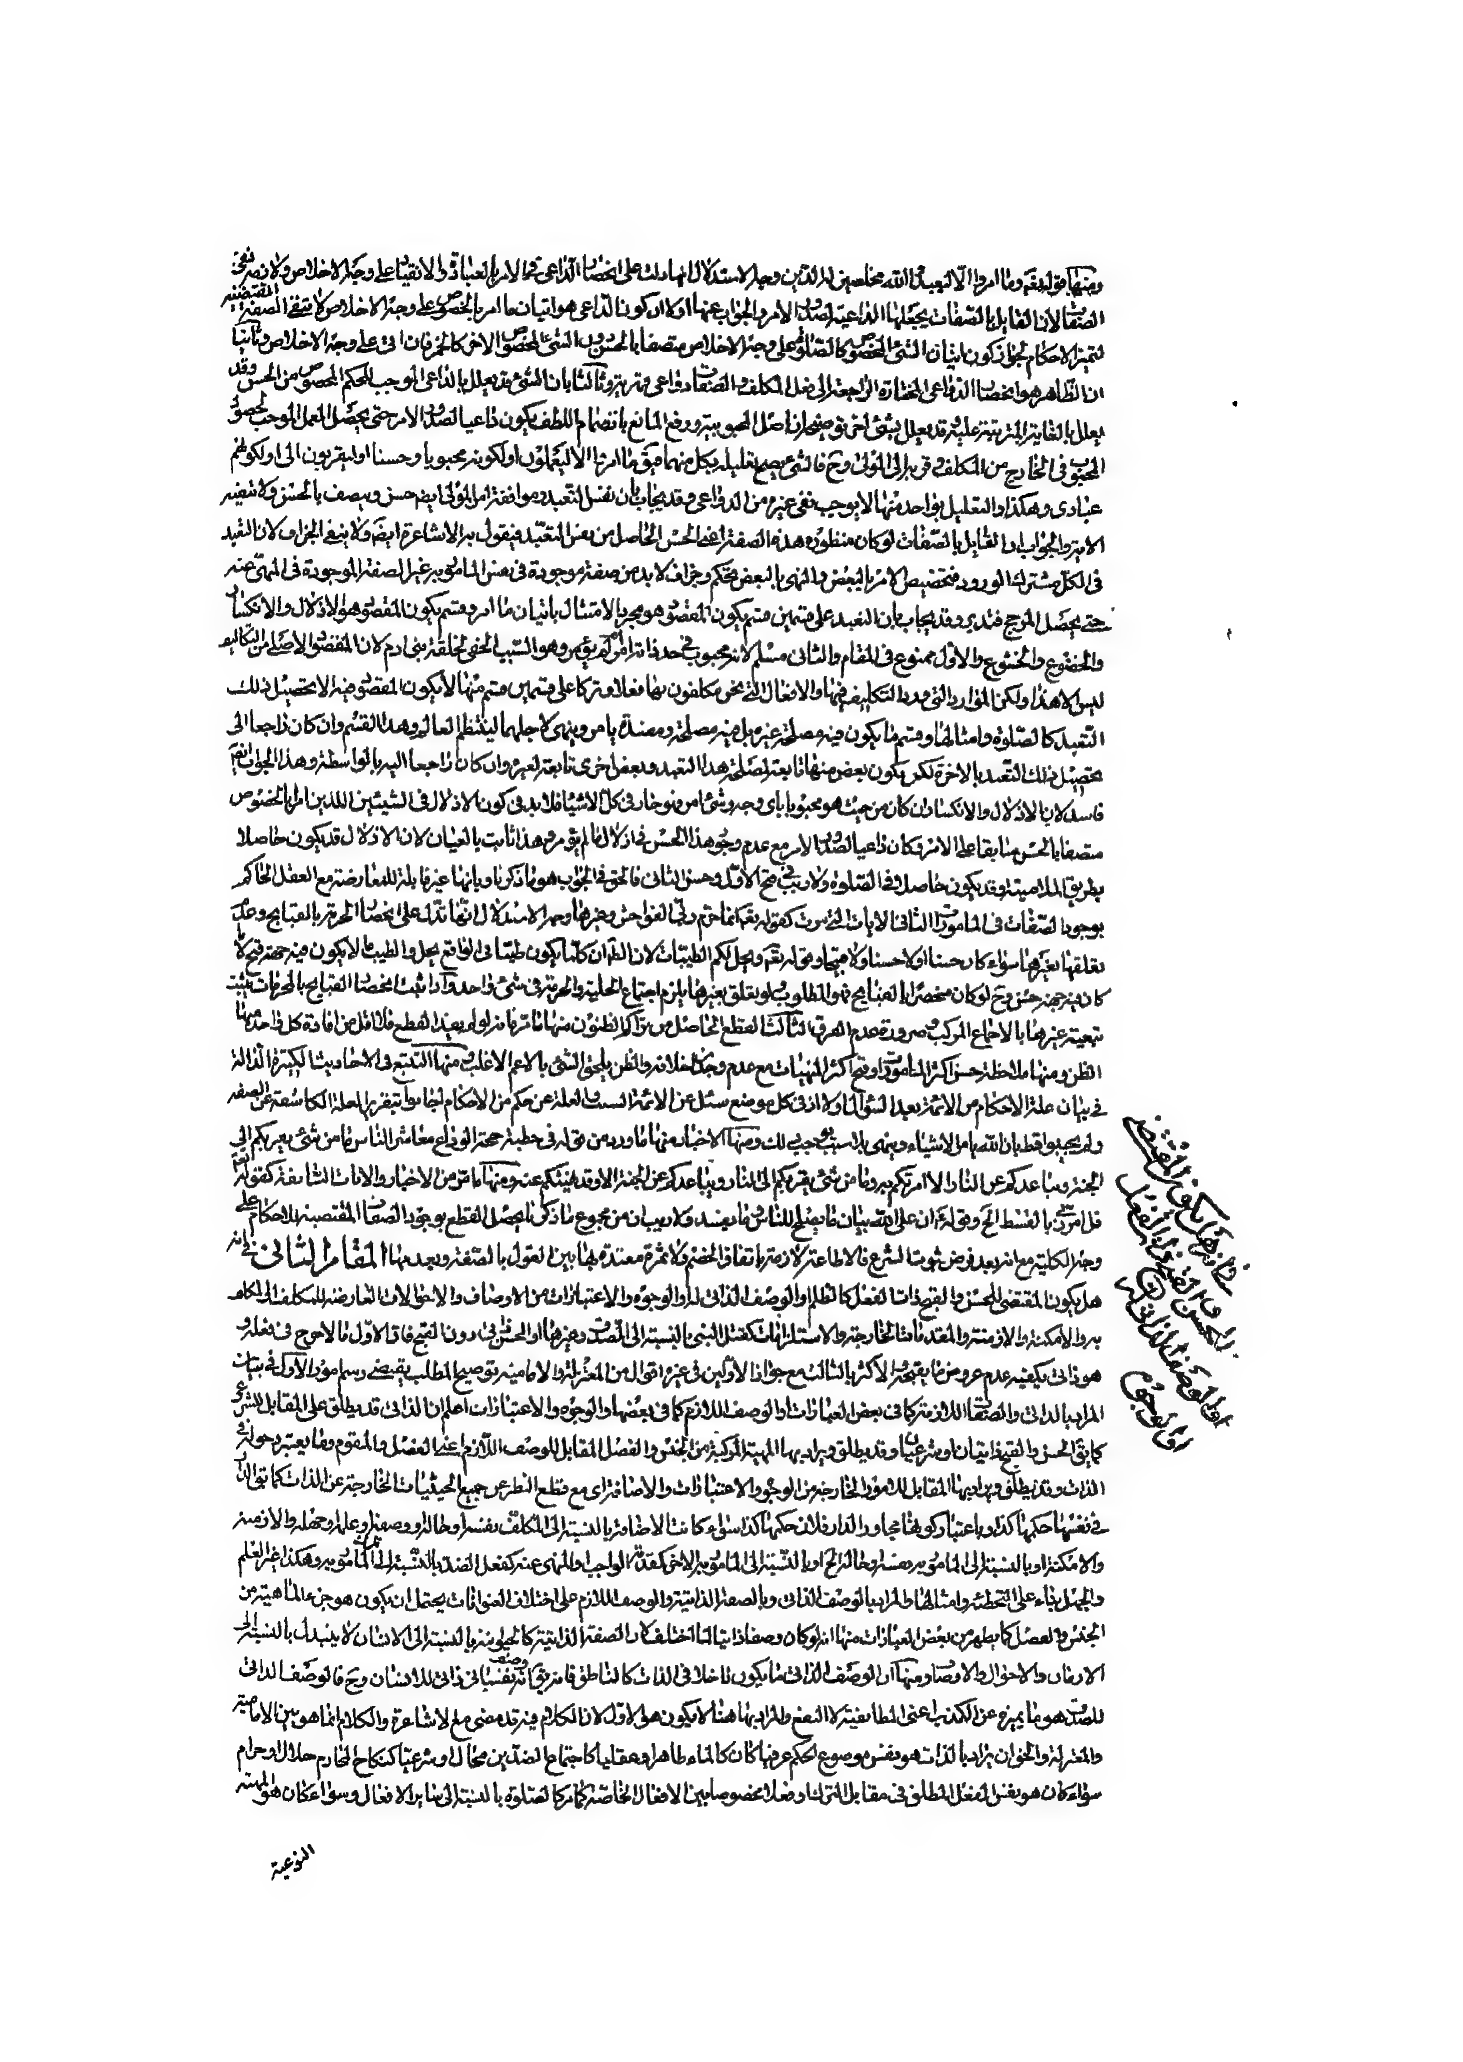 ومنها قوله تعالى وما امروا الا ليعبدوا الله مخلصين له الدين وجه الاستدلال انها دلت على انحصار الداعى فى الامر بالعبادة والانقياد على وجه الاخلاص ولا نصر نفى
الصفات لان القايل بالصفات يجعلها الداعية لصدور الامر والجواب عنها اولا ان كون الداعى هو اتيان ما امر بالخصوص على وجه الاخلاص لا تنفى الصفة المقتضية
لتميز الاحكام لجواز كون اتيان الشئ المخصوص كالصلوة على وجه الاخلاص متصفا بالحسن دون الشئ المخصوص الاخر كالخمر فان اتى على وجه الاخلاص وثانيا
ان الظاهر هو انحصار الدواعى المختارة الراجعة الى فعل المكلف والصفات دواعى وثالثا بان الشئ قد يعلل بالداعى الموجب للحكم المخصوص من الحسن وقد
يعلل بالغاية المترتبة عليه وقد يعلل بشئ اخر توضيحه ان اصل المحبوبية ورفع المانع بانضمام اللطف يكون داعيا لصدور الامر حتى يحصل العمل الموجب لحصول
المحبوب فى الخارج من المكلف وقربه الى المولى وح فالشئ يصح تعليله بكل منهما فيق ما امرنا الا ليعملوا او لكونه محبوبا وحسنا او ليقربون الى او لكونهم
عبادى وهكذا والتعليل بواحد منها لا يوجب نفى غيره من الدواعى وقد يجاب بان نفس التعبد وموافقة امر المولى ايضا حسن ويصف بالحسن ولا تنفيه
الاية والجواب ان القايل بالصفات لو كان منظوره هذه الصفة اعنى الحسن الحاصل من نفس التعبد فيقول به الاشاعرة ايضا ولا ينفى الجزاف لان التعبد
فى الكل مشترك الورود فتخصيص الامر بالبعض والنهى بالبعض تحكم وجزاف لا بد من صفة موجودة فى نفس المامور به غير الصفة الموجودة فى المنهى عنه
حتى يحصل المرجح فتدبر وقد يجاب بان التعبد على قسمين قسم يكون المقصود هو مجرد الامتثال باتيان ما امر وقسم يكون المقصود هو الاذلال والانكسار
والخضوع والخشوع والاول ممنوع فى المقام والثانى مسلم لانه محبوب فى حد ذاته وهو السبب الخفى لخلقة بنى ادم لان المقصود الاصلى من التكاليف
ليس الا هذا ولكن الموارد التى ورد التكليف فيها والافعال التى نحن مكلفون بها فعلا او تركا على قسمين قسم منها لا يكون المقصود فيه الا تحصيل ذلك
التعبد كالصلوة وامثالها وقسم ما يكون فيه مصلحة غيره بل فيه مصلحة ومفسدة يامر وينهى لاجلهما لينتظم العالم وهذا القسم وان كان راجعا الى
تحصيل ذلك التعبد بالاخرة لكن يكون بعض منها تابعة لمصلحة هذا التعبد وبعض اخرى تابعة لغيره وان كان راجعا اليه بالواسطة وهذا الجواب ايضا
فاسد لان الاذلال والانكسار ان كان من حيث هو محبوبا باى وجه وشئ فلا بد فى كون الاذلال فى الشيئين اللذين امر بالخصوص
متصفا بالحسن سابقا على الامر وكان داعيا لصدور الامر مع عدم وجود هذا الحسن فى اذلال ما لم يؤمر وهذا ثابت بالعيان لان الاذلال قد يكون حاصلا
بطريق الملامية وقد يكون حاصل فى الصلوة ولا ريب فى قبح الاول وحسن الثانى فالحق فى الجواب هو ما ذكرنا وبانها غير قابلة للمعارضة مع العقل الحاكم
بوجود الصفات فى المامورات الثانى الايات التى مرت كقوله تعالى انما حرم ربى الفواحش وغيرها وجه الاستدلال انها تدل على انحصار المحرم بالقبايح وعدم
تعلقها بغيرها سواء كان حسنا او لا حسنا ولا قبيحا وقوله تعالى ويحل لكم الطيبات لان الظ ان كلما يكون طيبا فى الواقع يحل والطيب ما لا يكون فيه جهة قبح لا
كان فيه جهة حسن وح لو كان منحصرا بالقبايح فهو المطلوب ولو تعلق بغيرها يلزم اجتماع الحلية والحرمة فى شئ واحد واذا ثبت انحصار القبايح بالمحرمات يثبت
تبعية غيرها بالاجماع المركب وضرورة عدم الفرق الثالث القطع الحاصل من تراكم الظنون منها ما مر فانه لو لم يفيد القطع فلا اقل من افادة كل واحد منها
الظن ومنها ملاحظة حسن اكثر المامورات وقبح اكثر المنهيات مع عدم وجدان خلافه والظن يلحق الشئ بالاعم الاغلب ومنها التتبع فى الاحاديث الكثيرة الدالة
فى بيان علة الاحكام من الائمة بعد السؤال اولا اذ فى كل موضع سئل عن الائمة السبب والعلة عن حكم من الاحكام اجابوا بتقرير العلة الكاشفة عن الصفة
ولم يجيبوا قط بان الله يامر الاشياء وينهى بلا سبب يوجب ذلك ومنها الاخبار منها ما ورد من قوله فى خطبة حجة الوداع معاشر الناس ما من شئ يقربكم الى
الجنة ويباعدكم عن النار الا امرتكم به وما من شئ يقربكم الى النار ويباعدكم عن الجنة الا وقد نهيتكم عنه ومنها ما مر من الاخبار والايات السابقة كقوله تعالى
قل امر ربى بالقسط الخ وقوله ان على الله بيان ما يصلح للناس وما يفسد ولا ريب ان من مجموع ما ذكرنا يحصل القطع بوجود الصفات المقتضية للاحكام على
وجه الكلية مع انه بعد فرض ثبوت الشرع فالاطاعة لازمة باتفاق الخصم ولا ثمرة معتدة بها بين القول بالصفة وبعدمها المقام الثانى فى انه
هل يكون المقتضى للحسن والقبح ذات الفعل كالظلم او الوصف الذاتى له او الوجوه والاعتبارات من الاوصاف والاحوالات العارضة للمكلف او المكلف
به والامكنة والازمنة والمقدمات الخارجة والاستلزامات كقتل النبى بالنسبة الى الصدق وغيرها او الحسن ذاتى دون القبح فان الاول فالاحوج فى فعله و
هو ذاتى يكفيه عدم عروض ما يقبحه الاكثر بالثالث مع جواز الاولين فى غيره اقوال من المعتزلة والامامية توضيح المطلب يقتضى رسم امور الاول فى بيان
المراد بالذاتى والصفات اللازمة كما فى بعض العبارات او الوصف اللازم كما فى بعضها والوجوه والاعتبارات اعلم ان الذاتى قد يطلق على المقابل للشرعى
كما يق الحسن والقبح ذاتيان وشرعيان وقد يطلق ويراد بها المهية المركبة من الجنس والفصل المقابل للوصف اللازم اعنى المفصل والمقوم وما يعتبر دخوله فى
الذات وقد يطلق ويراد بها المقابل للامور الخارجة من الوجوه والاعتبارات والاضافة اى مع قطع النظر عن جميع الحيثيات الخارجة عن الذات كما يق الدار
فى نفسها حكمها كذا وباعتبار كونها مجاورة لدار فلان حكمها كذا سواء كانت الاضافة بالنسبة الى المكلف نفسه او حاله ووصفه وعلمه وجهله والازمنة
والامكنة او بالنسبة الى المامور به نفسه وحاله الخ او بالنسبة الى المامور به الاخر كمقدمة الواجب والمنهى عنه كفعل الضد بالنسبة الى المامور به وهكذا غير العلم
والجهل بناء على التخطئة وامثالها والمراد بالوصف الذاتى وبالصفة الذاتية والوصف اللازم على اختلاف العنوانات يحتمل ان يكون هو جزء الماهية من
الجنس والفصل كما يظهر من بعض العبارات منها انه لو كان وصفا ذاتيا لما اختلف كان الصفة الذاتية كالحيوانية بالنسبة الى الانسان لا يتبدل بالنسبة الى
الازمان والاحوال والاوصاف ومنها ان الوصف الذاتى ما يكون داخلا فى الذات كالناطق فانه يق انه وصف نفسانى ذاتى للانسان وح فالوصف الذاتى
للصدق هو ما يميزه عن الكذب اعنى المطابقية لا النفع والمراد بها هنا لا يكون هو الاول لان الكلام فيه قد مضى مع الاشاعرة والكلام انما هو بين الامامية
والمعتزلة والحق ان يراد بالذات هو نفس موضوع الحكم عرفيا كان كالماء طاهر او عقليا كاجتماع الضدين محال او شرعيا كنكاح المحارم حلال او حرام
سواء كان هو نفس الفعل المطلق فى مقابل الترك او فعلا مخصوصا بين الافعال الخاصة كما مر كالصلوة بالنسبة الى ساير الافعال وسواء كان هو المهية
النوعية
هل يكون المقتضى
الحسن والقبح ذات الفعل
او الوصف الذاتى له
او الوجوه